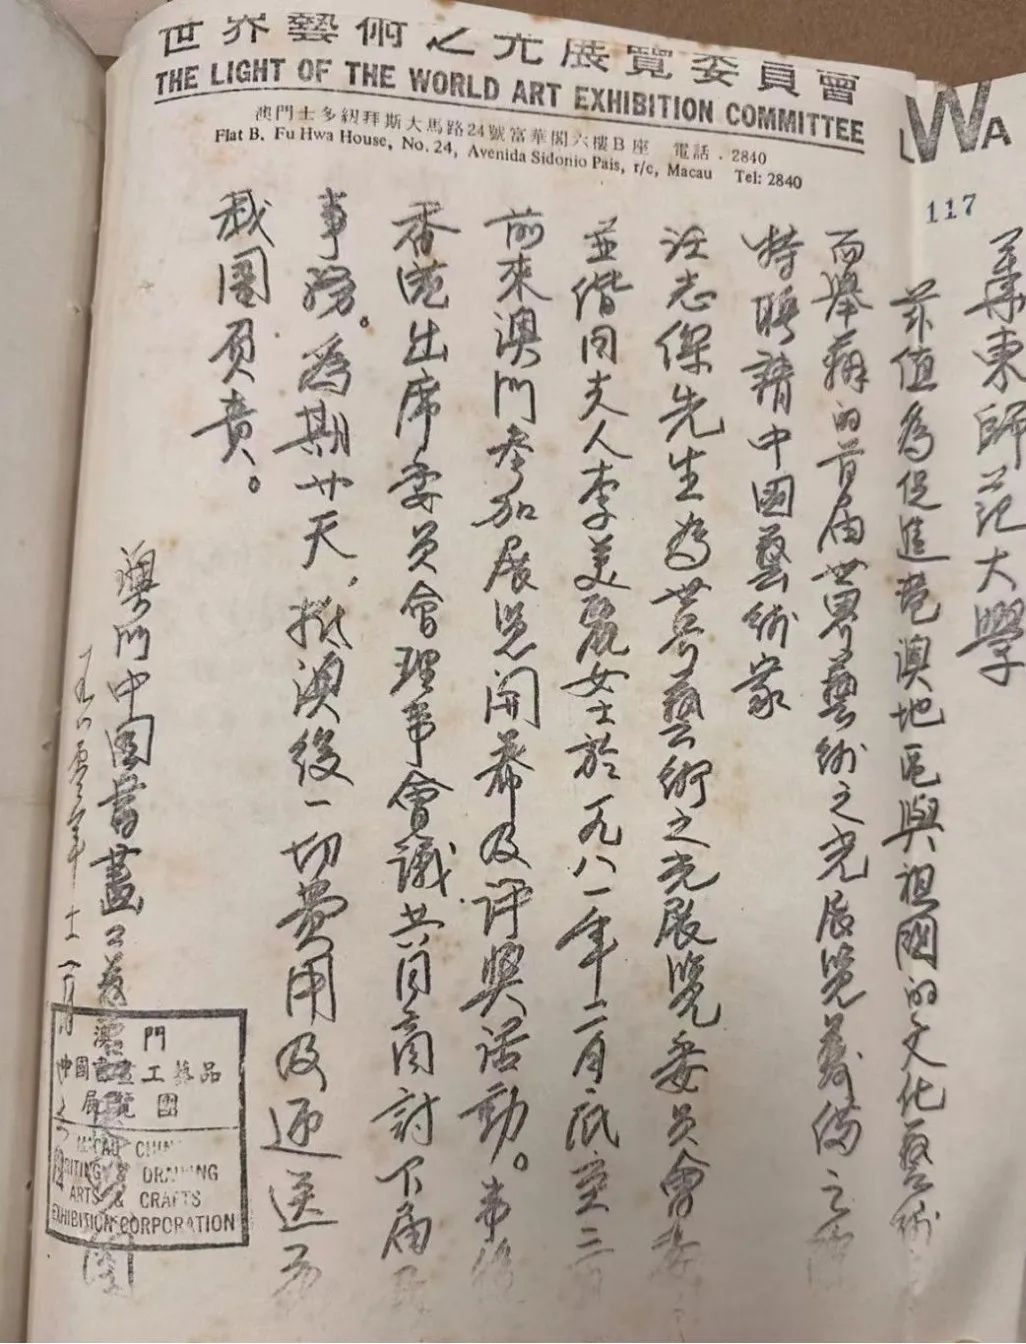 世界藝術之光展覽委員會
THE LIGHT OF THE WORLD ART EXHIBITION COMMITTEE
澳門士多紐拜斯大馬路24號富華閣六樓B座 電話.2840
Flat B, Fu Hwa House, No. 24, Avenida Sidonio Pais, r/c, Macau Tel: 2840
WA
117
華東師范大學
茲值為促進港澳地區與祖國的文化藝術
而舉辦的首届世界藝術之光展览籌備之
特聘請中國藝術家
汪志傑先生為世界藝術之光展覧委员會委
並偕同夫人李美麗女士於一九八一年二月底至三
前來澳門参加展览開幕及评奬活動。事後
香港出席委员會理事會議共同商討下届
事務。為期廿天，抵澳後一切費用及迎送為
我團負責。
澳門中國書畫工藝
一九八零年十二月
澳門
中國書畫工藝品
展覽團
MACAU CHIN
WRITING & DRAWING
ARTS & CRAFTS
EXHIBITION CORPORATION